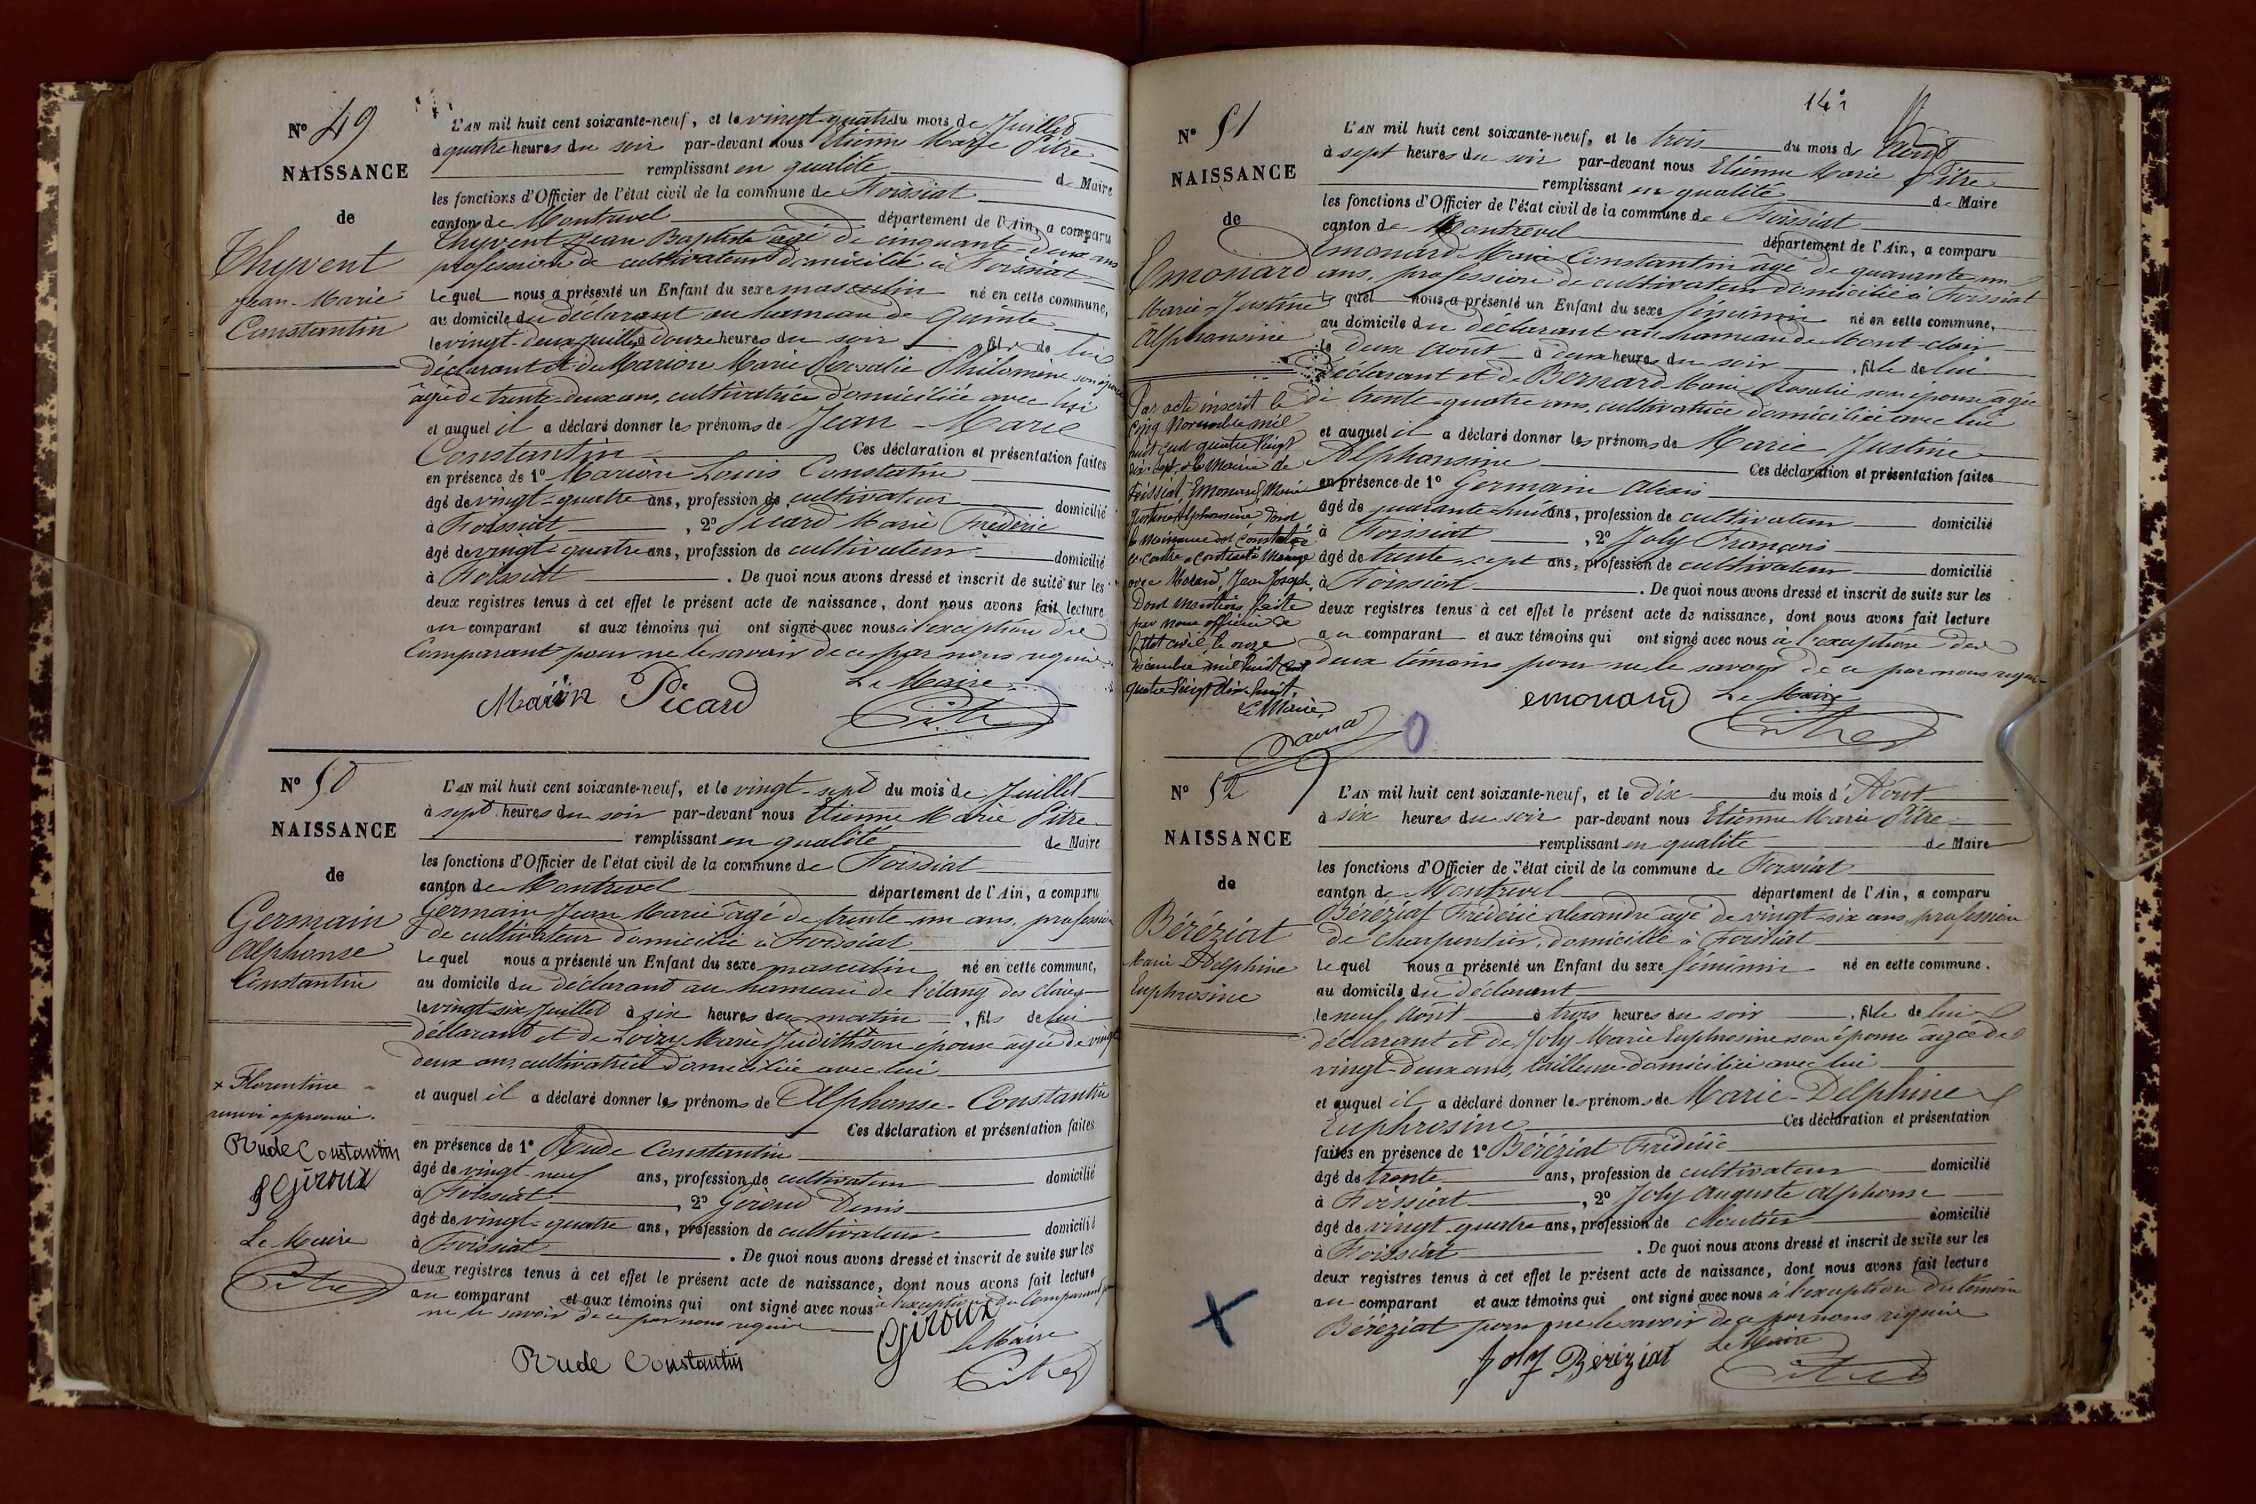 N° 49
NAISSANCE
de
Thyvent
Jean-Marie
Constantin
L'AN mil huit cent soixante-neuf, et le vingt-quatre du mois de Juillet
à quatre heures du soir par-devant nous Etienne Marie Pitre
remplissant en qualité de Maire
les fonctions d'Officier de l'état civil de la commune de Foissiat
canton de Montrevel département de l'Ain, a comparu
Thyvent Jean Baptiste âgé de cinquante-deux ans
profession de cultivateur domicilié à Foissiat
Lequel nous a présenté un Enfant du sexe masculin né en cette commune,
au domicile du déclarant au hameau de
le vingt-deux juillet à douze heures du soir, fils de lui
déclarant et de Marion Marie Rosalie Philomène son épouse
âgée de trente-deux ans, cultivatrice domiciliée avec lui
et auquel il a déclaré donner les prénoms de Jean-Marie
Constantin Ces déclaration et présentation faites
en présence de 1° Marion Louis Constatin
âgé de vingt-quatre ans, profession de cultivateur domicilié
à Foissiat, 2° Picard Marie Frédéric
âgé de vingt-quatre ans, profession de cultivateur domicilié
à Foissiat. De quoi nous avons dressé et inscrit de suite sur les
deux registres tenus à cet effet le présent acte de naissance, dont nous avons fait lecture
au comparant et aux témoins qui ont signé avec nous à l'exception du
Comparant pour ne le savoir de ce par nous requis
Le Maire
Picard
Pitre
N° 50
NAISSANCE
de
Germain
Alphonse
Constantin
L'AN mil huit cent soixante-neuf, et le vingt-sept du mois de Juillet
à sept heures du soir par-devant nous Etienne Marie Pitre
remplissant en qualité de Maire
les fonctions d'Officier de l'état civil de la commune de Foissiat
canton de Montrevel département de l'Ain, a comparu
Germain Jean Marie âgé de trente-un ans, profession
de cultivateur domicilié à Foissiat
Lequel nous a présenté un Enfant du sexe masculin né en cette commune,
au domicile du déclarant au hameau de l'étang des claires
le vingt-six Juillet à six heures du matin, fils de lui
déclarant et de Loizy Marie Judith + son épouse âgée de vingt
deux ans, cultivatrice domiciliée avec lui
et auquel il a déclaré donner les prénoms de Alphonse-Constantin
Ces déclaration et présentation faites
en présence de 1° Rude Constantin
âgé de vingt-neuf ans, profession de cultivateur domicilié
à Foissiat, 2° Giroud Denis
âgé de vingt-quatre ans, profession de cultivateur domicilié
à Foissiat. De quoi nous avons dressé et inscrit de suite sur les
deux registres tenus à cet effet le présent acte de naissance, dont nous avons fait lecture
au comparant et aux témoins qui ont signé avec nous à l'exception du Comparant pour
ne le savoir de ce par nous requis
Giroux
Le Maire
Rude Constantin
Pitre
+ Florentine
renvoi approuvé.
Rude Constantin
Giroux
Le Maire
Pitre
N° 51
NAISSANCE
de
Emonard
Marie-Justine
Alphonsine
L'AN mil huit cent soixante-neuf, et le trois du mois de Août
à sept heures du soir par-devant nous Etienne Marie Pitre
remplissant en qualité de Maire
les fonctions d'Officier de l'état civil de la commune de Foissiat
canton de Montrevel département de l'Ain, a comparu
Emonard Marie Constantin âgé de quarante-un
ans, profession de cultivateur domicilié à Foissiat
Lequel nous a présenté un Enfant du sexe féminin né en cette commune,
au domicile du déclarant au hameau de Mont-clair
le deux Août à deux heures du soir, fille de lui
déclarant et de Bernard Marie Rosalie son épouse âgée
de trente-quatre ans, cultivatrice domiciliée avec lui
et auquel il a déclaré donner les prénoms de Marie Justine
Alphonsine Ces déclaration et présentation faites
en présence de 1° Germain Alexis
âgé de quarante-huit ans, profession de cultivateur domicilié
à Foissiat, 2° Joly François
âgé de trente-sept ans, profession de cultivateur domicilié
à Foissiat. De quoi nous avons dressé et inscrit de suite sur les
deux registres tenus à cet effet le présent acte de naissance, dont nous avons fait lecture
au comparant et aux témoins qui ont signé avec nous à l'exception des
deux témoins pour ne le savoir de ce par nous requis
emonard Le Maire
Pitre
Par acte inscrit le
cinq Novembre mil
huit cent quatre vingt
dix-sept, à la Mairie de
Foissiat, Emonard, Marie
Justine Alphonsine dont
la naissance est constatée
ci-contre a contracté mariage
avec Morand, Jean Joseph.
Dont mention faite
par nous officier de
l'état civil, le onze
décembre mil huit cent
quatre vingt dix huit.
Le Maire,
N° 52
NAISSANCE
de
Béréziat
Marie Delphine
Euphrosine
L'AN mil huit cent soixante-neuf, et le dix du mois d'Août
à six heures du soir par-devant nous Etienne Marie Pitre
remplissant en qualité de Maire
les fonctions d'Officier de l'état civil de la commune de Foissiat
canton de Montrevel département de l'Ain, a comparu
Béréziat Frédéric alexandre âgé de vingt-six ans, profession
de charpentier, domicilié à Foissiat
Lequel nous a présenté un Enfant du sexe féminin né en cette commune.
au domicile du déclarant
le neuf Août à trois heures du soir, fille de lui
déclarant et de Joly Marie Euphrosine son épouse âgée de
vingt-deux ans, tailleuse domiciliée avec lui
et auquel il a déclaré donner les prénoms de Marie-Delphine
Euphrosine Ces déclaration et présentation
faites en présence de 1° Béréziat Frédéric
âgé de trente ans, profession de cultivateur domicilié
à Foissiat, 2° Joly Auguste Alphonse
âgé de vingt-quatre ans, profession de domicilié
à Foissiat. De quoi nous avons dressé et inscrit de suite sur les
deux registres tenus à cet effet le présent acte de naissance, dont nous avons fait lecture
au comparant et aux témoins qui ont signé avec nous à l'exception du témoin
Béréziat pour ne le savoir de ce par nous requis
Le Maire
Joly Béréziat
Pitre